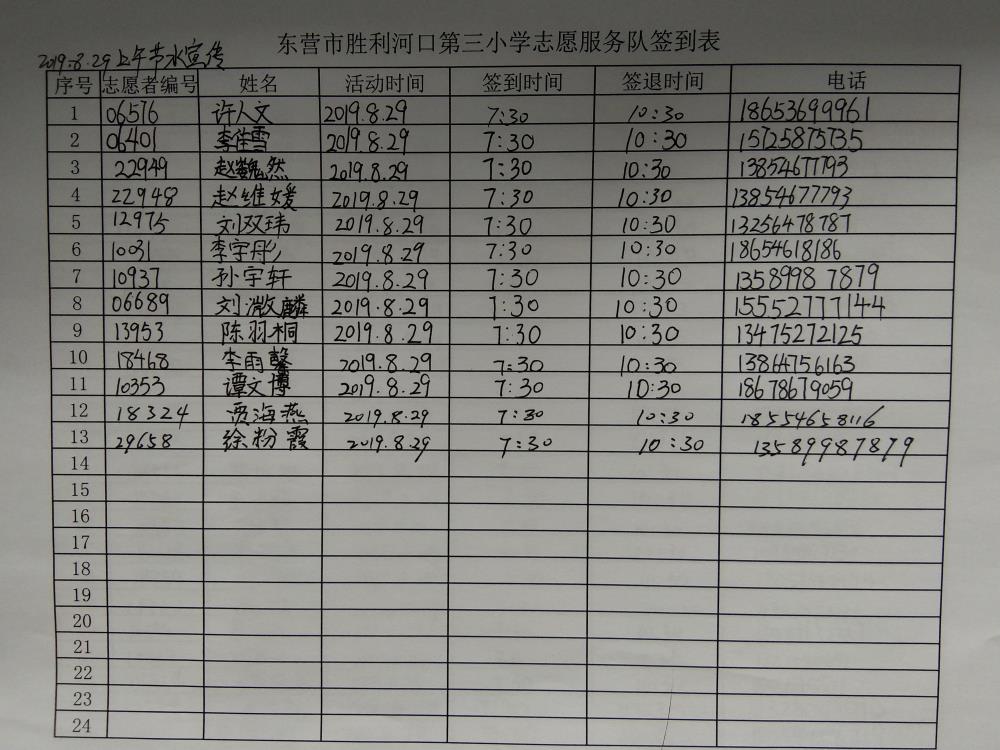 东营市胜利河口第三小学志愿服务队签到表
2019.8.29上午节水宣传
序号 志愿者编号 姓名 活动时间 签到时间 签退时间 电话
1 06576 许人文 2019.8.29 7:30 10:30 18653699961
2 06401 李佳雪 2019.8.29 7:30 10:30 15725875735
3 22949 赵魏然 2019.8.29 7:30 10:30 13854677793
4 22948 赵维媛 2019.8.29 7:30 10:30 13854677793
5 12975 刘双玮 2019.8.29 7:30 10:30 13256478787
6 10031 李宇彤 2019.8.29 7:30 10:30 18654618186
7 10937 孙宇轩 2019.8.29 7:30 10:30 13589987879
8 06689 刘澈麟 2019.8.29 7:30 10:30 15552777144
9 13953 陈羽桐 2019.8.29 7:30 10:30 13475272125
10 18468 李雨馨 2019.8.29 7:30 10:30 13864756163
11 10353 谭文博 2019.8.29 7:30 10:30 18678679059
12 18324 贾海燕 2019.8.29 7:30 10:30 18554658116
13 29658 徐粉霞 2019.8.29 7:30 10:30 13589987879
14
15
16
17
18
19
20
21
22
23
24